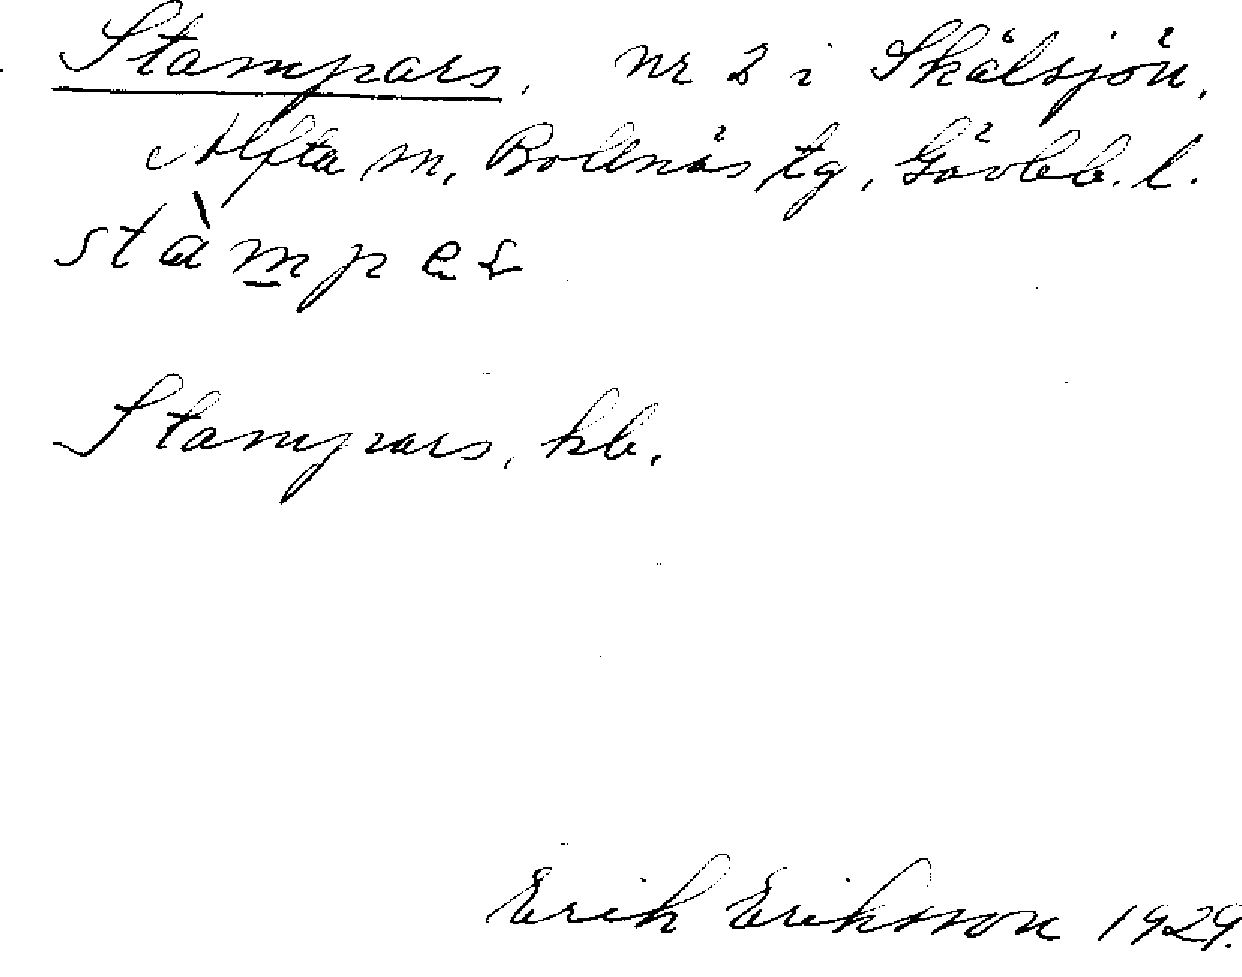 Stampars, nr 2 i Skålsjön,
Alfta sn, Bollnäs tg, Gävleb. l.
stàmpes
Stampars, kb.
Erik Eriksson 1929.